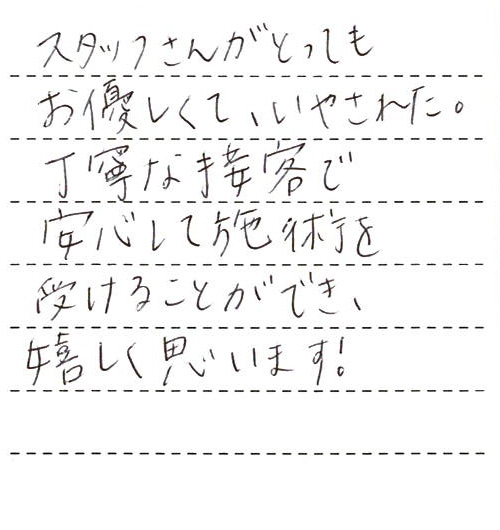 スタッフさんがとっても
お優しくて、いやされた。
丁寧な接客で
安心して施術を
受けることができ、
嬉しく思います!